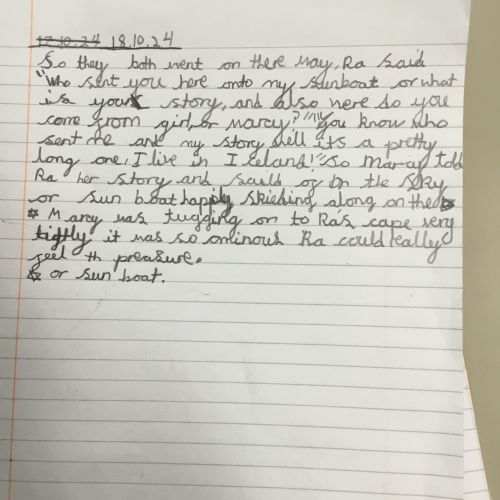 17.10.24 18.10.24
So they both went on there way, Ra said
"Who sent you here onto my sunboat or what
is your story, and also where do you
come from girl, or marcy?" "You know who
sent me and my story well its a pretty
long one, I live in Iceland!" So Marcy told
Ra her story and sailed of on the sky
or sun boat happily skieding along on the
* Marcy was tugging on to Ra's cape very
tightly it was so ominous Ra could really
feel th preasure.
* or sun boat.